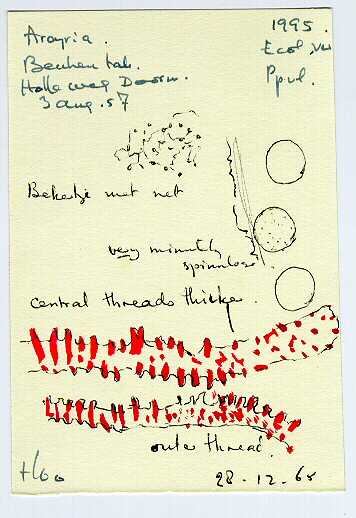 Arcyria.
Beuken tak.
Holle weg Doorn.
3 aug. 57
1995.
Ecol. VII
Ppul.
Bekertje met net
very minutely
spinulose
central threads thicker.
outer thread.
+600
28-12-65